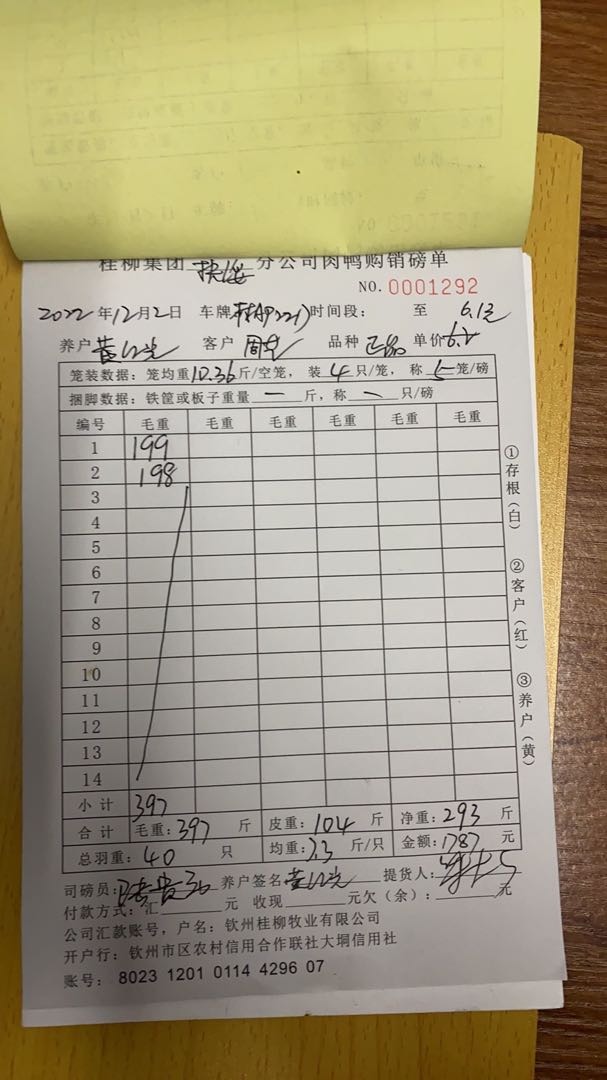 桂柳集团 分公司肉鸭购销磅单
NO. 0001292
2022年12月2日 车牌 时间段: 至 6.1元
养户 黄 客户 周 品种 正品 单价6.2
笼装数据: 笼均重10.36斤/空笼, 装4只/笼, 称5笼/磅
捆脚数据: 铁筐或板子重量一斤, 称一只/磅
编号 毛重 毛重 毛重 毛重 毛重 毛重
1 199
2 198
3
4
5
6
7
8
9
10
11
12
13
14
小计 397
合计 毛重:397斤 皮重:104斤 净重:293斤
总羽重:40只 均重:7.3斤/只 金额:1787元
司磅员: 养户签名 黄 提货人:
付款方式:汇 元 收现 元欠(余): 元
公司汇款账号,户名:钦州桂柳牧业有限公司
开户行:钦州市区农村信用合作联社大垌信用社
账号: 8023 1201 0114 4296 07
①存根(白)
②客户(红)
③养户(黄)